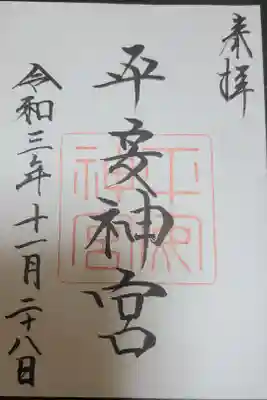 奉拝
平安神宮
平安
神宮
令和三年十一月二十八日